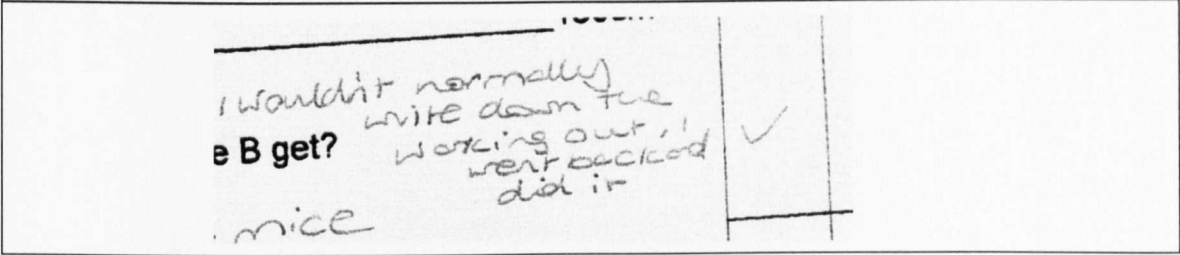 I wouldn't normally
write down the
e B get?
working out, I
went back and
did it
mice